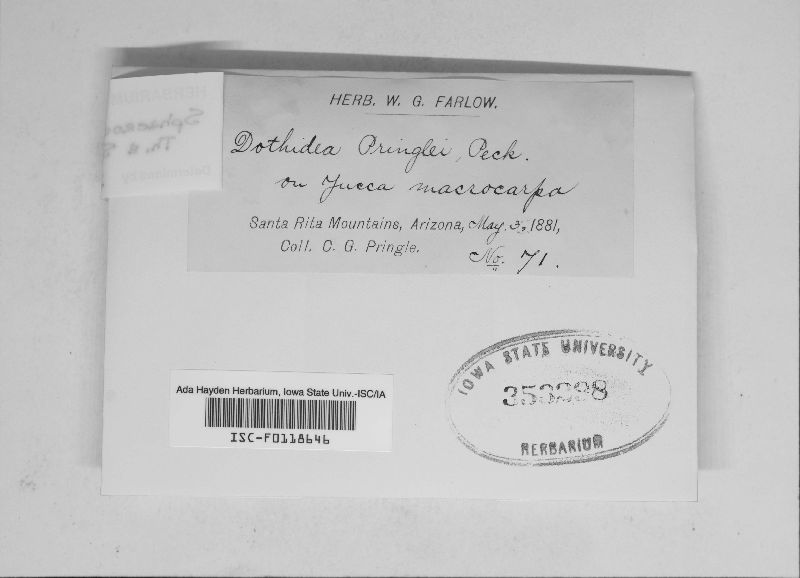 HERB. W. G. FARLOW.
Dothidea Pringlei, Peck.
on Yucca macrocarpa
Santa Rita Mountains, Arizona, May 3, 1881,
Coll. C. G. Pringle. No. 71.
HERBARIUM
Th. &
Determined by
Ada Hayden Herbarium, Iowa State Univ.-ISC/IA
ISC-F0118646
IOWA STATE UNIVERSITY
HERBARIUM